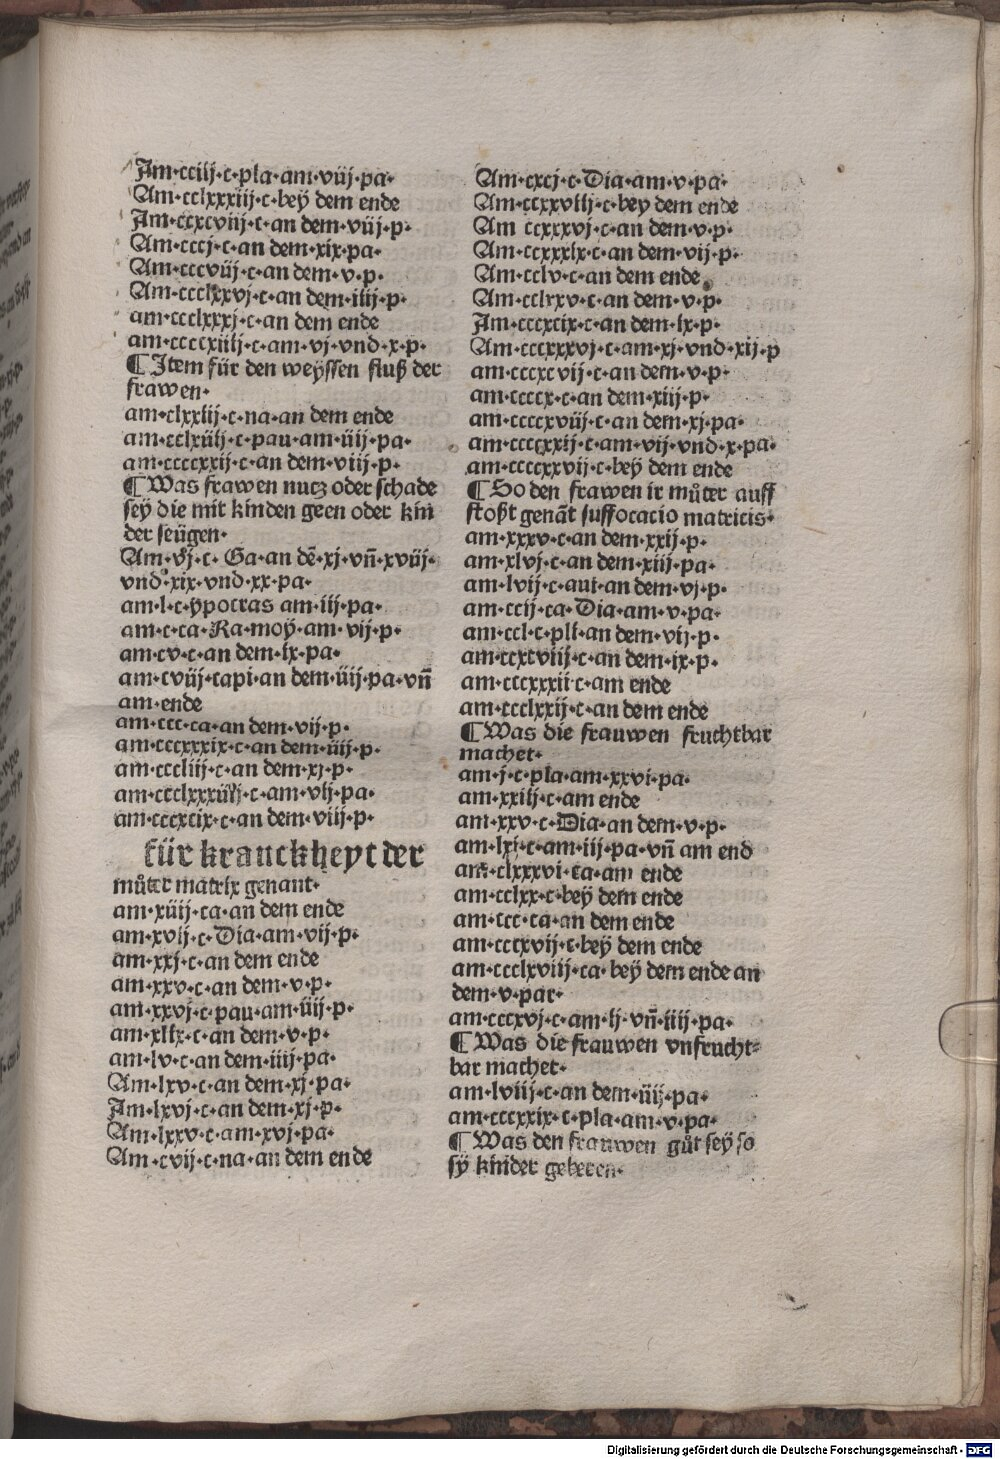 Am·cciij·c·pla·am·viij·pa·
Am·cclxxxiij·c·beÿ dem ende
Am·ccxcviij·c·an dem·viij·p·
Am·cccj·c·an dem·xix·pa·
Am·cccviij·c·an dem·v·p·
Am·ccclxxvj·c·an dem·iiij·p·
am·ccclxxxj·c·an dem ende
am·ccccxiiij·c·am·vj·vnd·x·p·
¶ Item für den weyssen fluß der
frawen·
am·clxxiij·c·na·an dem ende
am·cclxiiij·c·pau·am·iiij·pa·
am·ccccxxij·c·an dem·viij·p·
¶ Was frawen nucz oder schade
seÿ die mit kinden geen oder kin
der seügen·
Am·vj·c·Ga·an dē·xj·vn̄·xviij·
vnd·xix·vnd·xx·pa·
am·l·c·ÿpocras am·iij·pa·
am·c·ca·Ra·moÿ·am·vij·p·
am·cv·c·an dem·ix·pa·
am·cviij·capi·an dem·iiij·pa·vn̄
am·ende
am·ccc·ca·an dem·vij·p·
am·cccxxxix·c·an dem·iiij·p·
am·cccliij·c·an dem·xj·p·
am·ccclxxxiiij·c·am·vij·pa·
am·cccxcix·c·an dem·viij·p·
für kranckheyt der
mů̊ter matrix genant·
am·xiiij·ca·an dem ende
am·xvij·c·Dia·am·vij·p·
am·xxj·c·an dem ende
am·xxv·c·an dem·v·p·
am·xxvj·c·pau·am·iiij·p·
am·xlix·c·an dem·v·p·
am·lv·c·an dem·iiij·pa·
Am·lxv·c·an dem·xj·pa·
Am·lxvj·c·an dem·xj·p·
Am·lxxv·c·am·xvj·pa·
Am·cvij·c·na·an dem ende
Am·cxcj·c·Dia·am·v·pa·
Am·ccxxviij·c·bey dem ende
Am ccxxxvj·c·an dem·v·p·
Am·ccxxxix·c·an dem·vij·p·
Am·cclv·c·an dem ende
Am·cclxxv·c·an dem·v·p·
Am·cccxcix·c·an dem·ix·p·
Am·cccxxxvj·c·am·xj·vnd·xij·p
am·cccxcvij·c·an dem·v·p·
am·ccccx·c·an dem·xiij·p·
am·ccccxviij·c·an dem·xj·pa·
am·ccccxxij·c·am·vij·vnd·x·pa·
am·ccccxxvij·c·beÿ dem ende
¶ So den frawen ir mů̊ter auff
stoßt genāt suffocacio matricis·
am·xxxv·c·an dem·xxij·p·
am·xlvj·c·an dem·xiij·pa·
am·lvij·c·aui·an dem·vj·p·
am·ccij·ca·Dia·am·v·pa·
am·ccl·c·pli·an dem·vij·p·
am·ccxcviij·c·an dem·ix·p·
am·cccxxxii·c·am ende
am·ccclxxij·c·an dem ende
¶ Was die frauwen fruchtbar
machet·
am·j·c·pla·am·xxvi·pa·
am·xxiij·c·am ende
am·xxv·c·Dia·an dem·v·p·
am·lxj·c·am·iij·pa·vn̄ am end
am·clxxxvi·ca·am ende
am·cclxx·c·beÿ dem ende
am·ccc·ca·an dem ende
am·cccxvij·c·beÿ dem ende
am·ccclxviij·ca·beÿ dem ende an
dem·v·par·
am·cccxvj·c·am·ij·vn̄·iiij·pa·
¶ Was die frauwen vnfrucht=
bar machet·
am·lviij·c·an dem·iiij·pa·
am·cccxxix·c·pla·am·v·pa·
¶ Was den frauwen gůt seÿ so
sÿ kinder geberen·
Digitalisierung gefördert durch die Deutsche Forschungsgemeinschaft · DFG